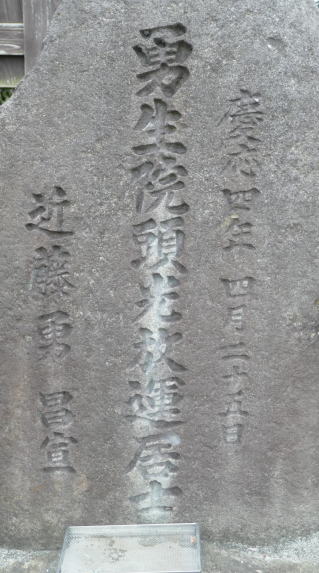 慶応四年 四月二十五日
勇生院頭光放運居士
近藤勇 昌宜